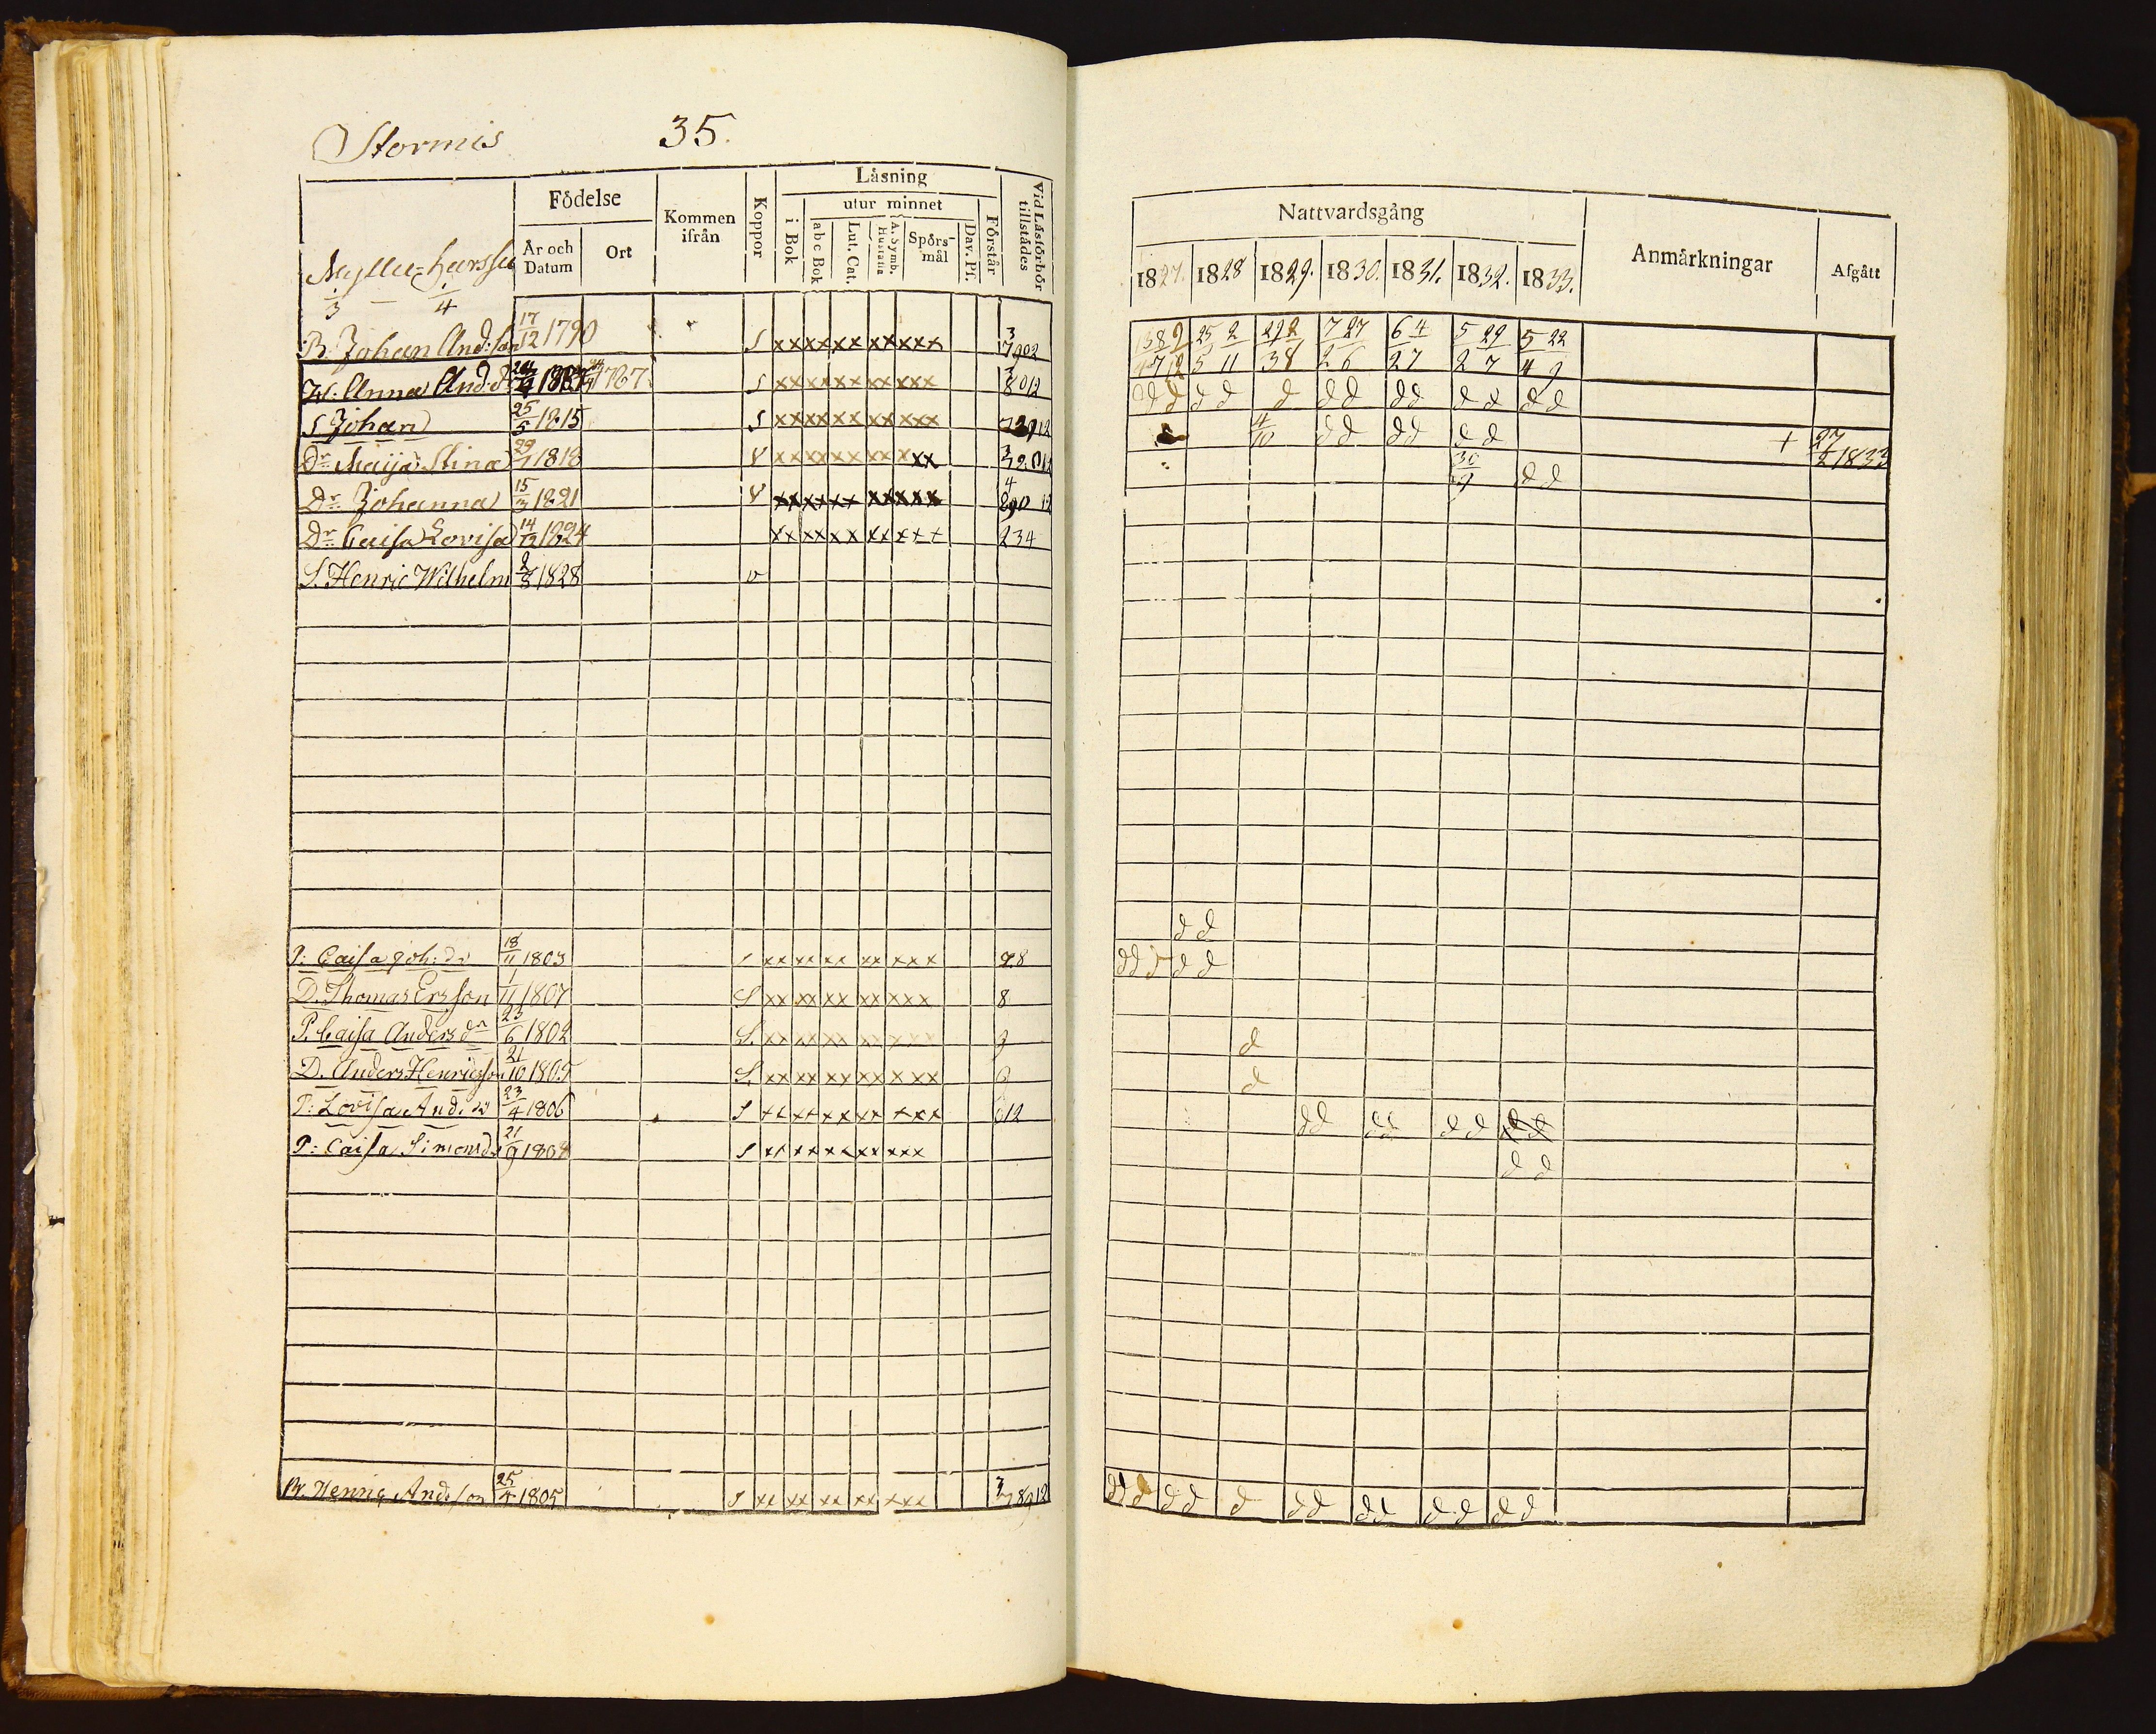 Stormis 35.
Födelse
År och Datum
Ort
Kommen ifrån
Koppor
Läsning
i Bok
utur minnet
abc Bok
Lut. Cat.
A. Symb. Hustafla
Spörsmål
Dav. Pf.
Förstår
Vid Läsförhör tillstädes
3 4
B. Johan And:son 17/12 1790 S xx xx xx xx xxx 3 7902
H: Anna And:dr 1787 S xx xx xx xx xxx 8012
S Johan 25/5 1815 S xx xx xx xx xxx
Dr Maija Stina 29/7 1818 V xx xx xx xx xxx
Dr Johanna 15/3 1821 V xx xx xx xx xxx
Dr Caisa Lovisa 14/12 1824 xx xx xx xx xxx 234
S. Henric Wilhelm 2/8 1828 v
P: Caisa Joh:dr 18/11 1803 s xx xx xx xx xxx 78
D. Thomas Ersson 1/11 1807 S xx xx xx xx xxx 8
P. Caisa Andersdr 23/6 1802 S. xx xx xx xx xxx
D. Anders Henricsson 21/10 1805 S. xx xx xx xx xxx
P: Lovisa And:dr 23/4 1806 S xx xx xx xx xxx 012
P: Caisa Simonsdr 21/9 1804 S xx xx xx xx xxx
Br. Henric And:son 25/4 1805 S xx xx xx xx xxx 3 78912
Nattvardsgång
1827. 1828 1829. 1830. 1831. 1832. 1833.
Anmärkningar
Afgått
25 2 7 27 6 4 5 29 5 22
5 11 38 2 6 2 7 2 7 4 9
d d d d d d d d d d d d d
4/10 d d d d d d + 27/2 1833
30/9 d d
d d
d d d d d
d
d
d d d d d d d d
d d
d d d d d d d d d d d d d d